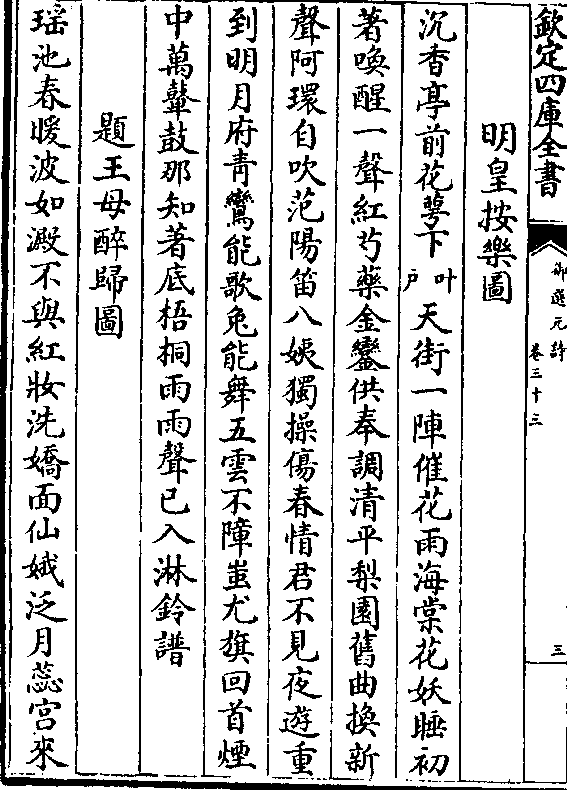 欽定四庫全書
御選元詩
卷三十三
三
明皇按樂圖
沉香亭前花萼下叶戶天街一陣催花雨海棠花妖睡初
著喚醒一聲紅芍藥金鑾供奉調清平梨園舊曲換新
聲阿環自吹范陽笛八姨獨操傷春情君不見夜遊重
到明月府青鸞能歌兔能舞五雲不障蚩尤旗回首煙
中萬鼙鼓那知著底梧桐雨雨聲已入淋鈴譜
題王母醉歸圖
瑶池春暖波如澱不與紅妝洗嬌面仙娥泛月蕊宮來